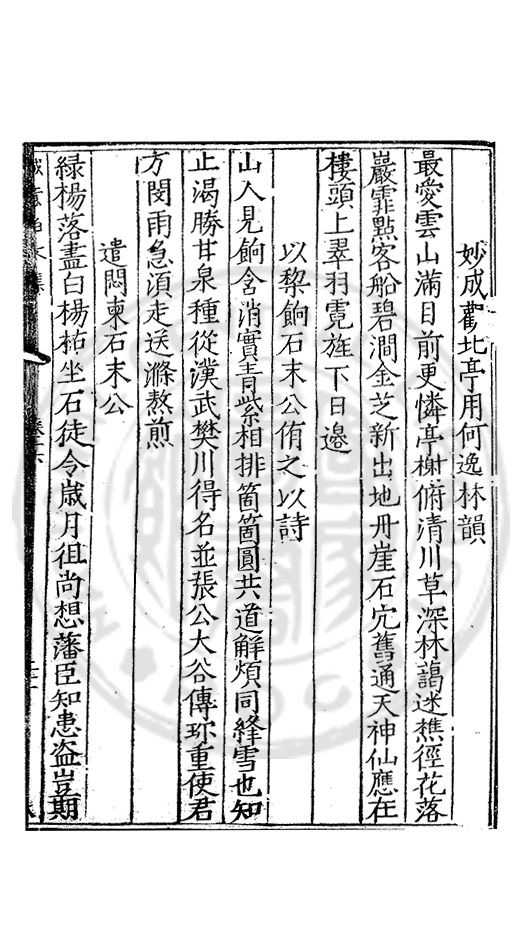 妙成觀北亭用何逸林韻
最愛雲山滿目前更憐亭榭俯清川草深林藹迷樵徑花落
巖霏點客船碧澗金芝新出地丹崖石宂舊通天神仙應在
樓頭上翠羽霓旌下日邉
以棃餉石末公侑之以詩
山人見餉含消實青紫相排箇箇圓共道解煩同絳雪也知
止渴勝甘泉種從漢武樊川得名並張公大谷傳珎重使君
方閔雨急湏走送滌熬煎
遣悶柬石末公
緑楊落盡白楊枯坐石徒令歲月徂尚想藩臣知患盗豈期